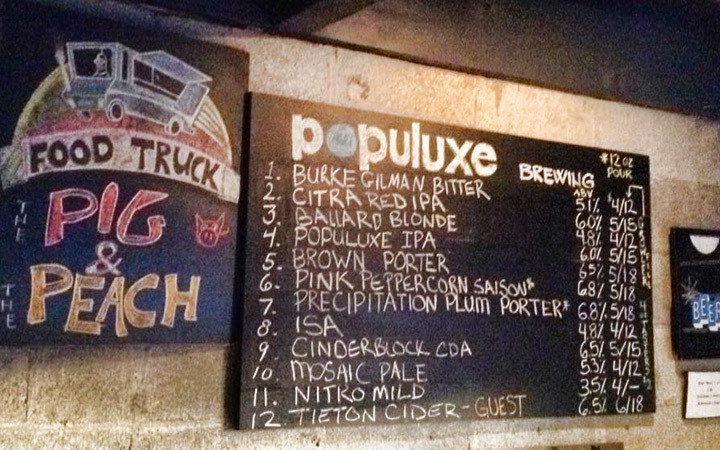 FOOD TRUCK
THE
PIG
&
THE
PEACH
populuxe BREWING
*12 OZ
POUR
ABV
1. BURKE GILMAN BITTER 5.1% $4/12
2. CITRA RED IPA 6.0% 5/15
3. BALLARD BLONDE 4.8% 4/12
4. POPULUXE IPA 6.0% 5/15
5. BROWN PORTER 6.5% 5/18
6. PINK PEPPERCORN SAISON* 6.8% 5/18
7. PRECIPITATION PLUM PORTER* 6.8% 5/18
8. ISA 4.8% 4/12
9. CINDERBLOCK CDA 6.5% 5/15
10. MOSAIC PALE 5.3% 4/12
11. NITRO MILD 3.5% 4/-
12. TIETON CIDER - GUEST 6.5% 6/18
BEER